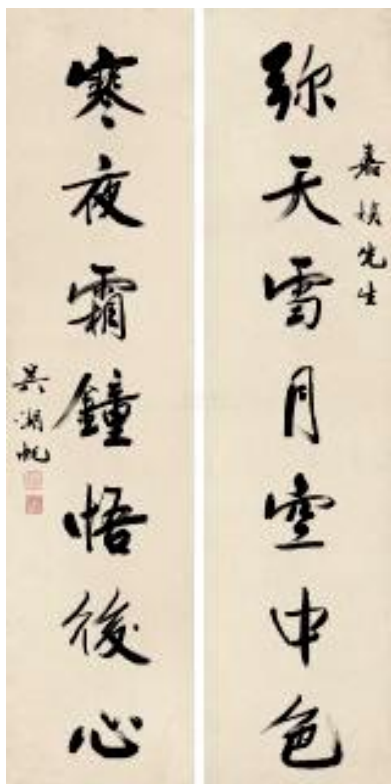 弥天雪月空中色
嘉㥀先生
寒夜霜鐘悟後心
吳湖帆